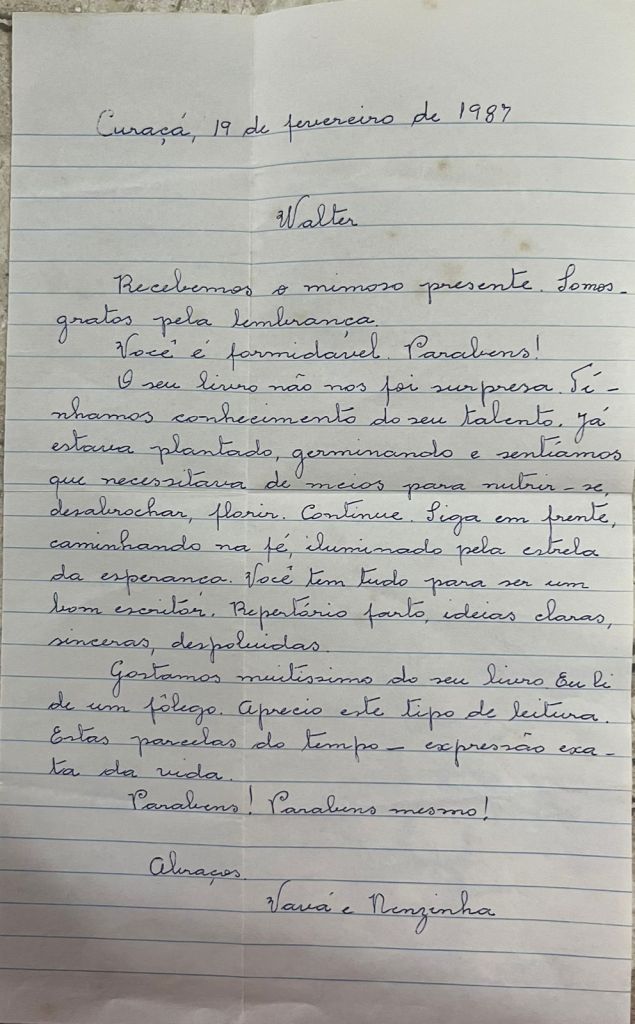 Curaçá, 19 de fevereiro de 1987
Walter
Recebemos o mimoso presente. Somos-
gratos pela lembrança.
Você é formidável. Parabens!
O seu livro não nos foi surpresa. Tí-
nhamos conhecimento do seu talento. Já
estava plantado, germinando e sentíamos
que necessitava de meios para nutrir-se,
desabrochar, florir. Continue. Siga em frente,
caminhando na fé, iluminado pela estrela
da esperança. Você tem tudo para ser um
bom escritor. Repertório farto, ideias claras,
sinceras, despoluidas.
Gostamos muitíssimo do seu livro. Eu li
de um fôlego. Aprecio este tipo de leitura.
Estas parcelas do tempo - expressão exa-
ta da vida.
Parabens! Parabens mesmo!
Abraços.
Vavá e Nenzinha